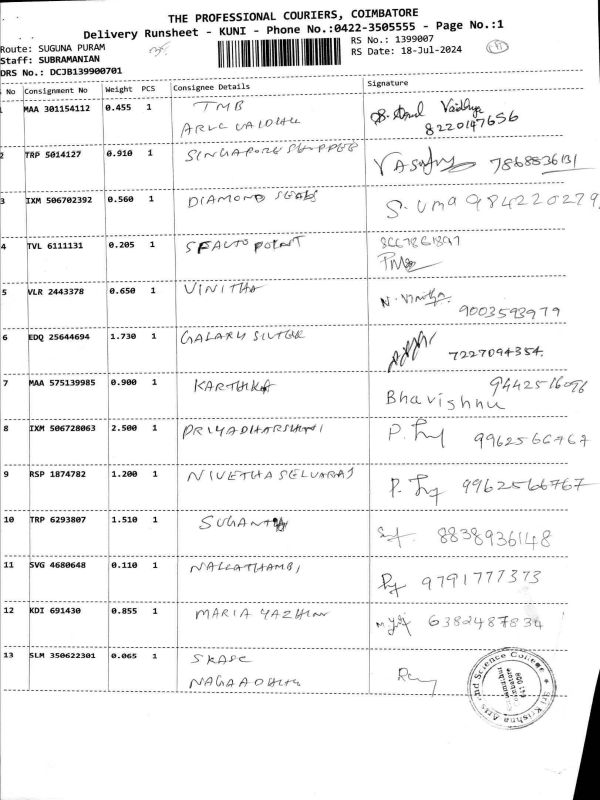 THE PROFESSIONAL COURIERS, COIMBATORE
Delivery Runsheet - KUNI - Phone No.:0422-3505555 - Page No.:1
Route: SUGUNA PURAM
RS No.: 1399007
Staff: SUBRAMANIAN
RS Date: 18-Jul-2024
DRS No.: DCJB139900701
No Consignment No Weight PCS Consignee Details Signature
MAA 301154112 0.455 1 TMB
8220147656
2 TRP 5014127 0.910 1 SINGAPORE
7868836131
3 IXM 506702392 0.560 1 DIAMOND SEALS S. Uma 984220279
4 TVL 6111131 0.205 1 SF AUTO POINT
5 VLR 2443378 0.650 1 VINITHA N. Vinitha
9003593979
6 EDQ 25644694 1.730 1 GALAXY
7227094354
7 MAA 575139985 0.900 1 KARTHIKA 9442516096
Bhavishnu
8 IXM 506728063 2.500 1 PRIYADHARSHINI P. 9962566767
9 RSP 1874782 1.200 1 NIVETHA SELVARAJ P. 9962566767
10 TRP 6293807 1.510 1 SUGANTHI 8838936148
11 SVG 4680648 0.110 1 NALLATHAMBI 9791777373
12 KDI 691430 0.855 1 MARIA YAZHINI 6382487834
13 SLM 350622301 0.065 1 SKASC
Sri Krishna Arts and Science College
Coimbatore
641 008